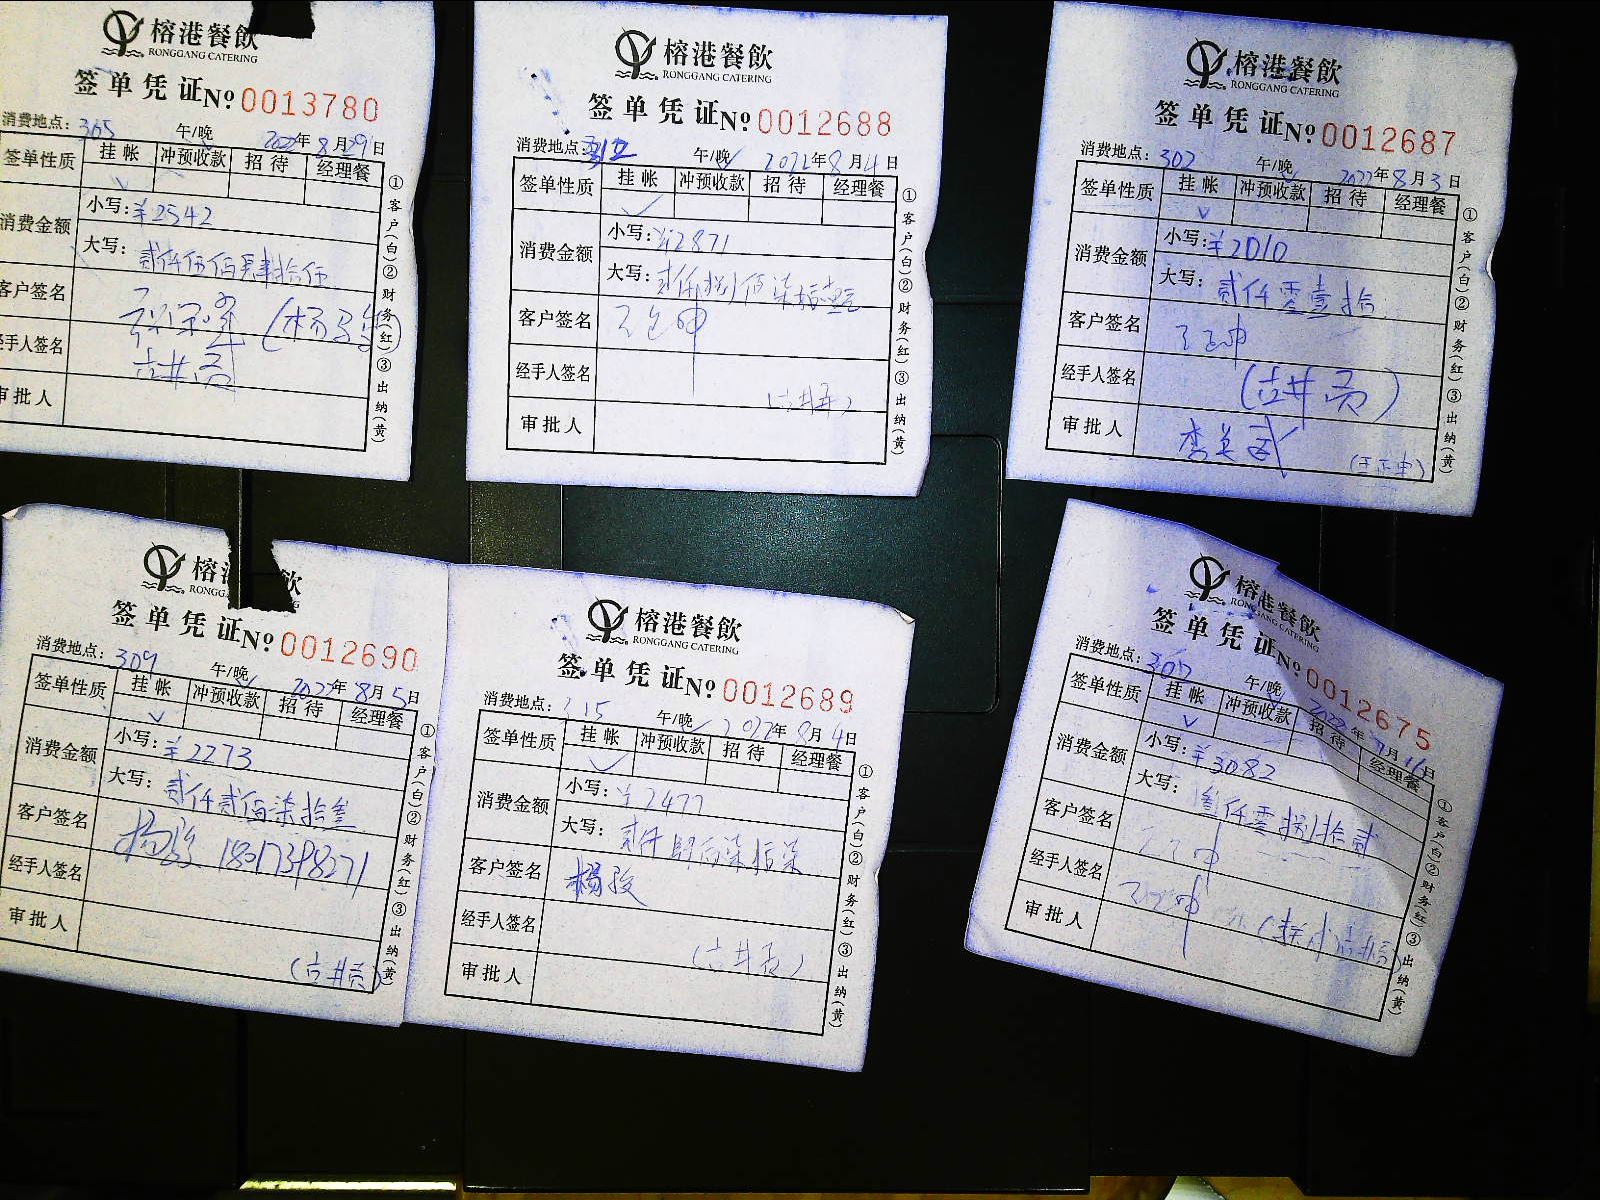 榕港餐飲
RONGGANG CATERING
签单凭证 №0013780
消费地点: 305 午/晚 2022年8月29日
签单性质 挂帐 冲预收款 招待 经理餐
消费金额 小写: ¥2542
大写: 贰仟伍佰肆拾
客户签名
经手人签名
审批人
①客户(白)②财务(红)③出纳(黄)
榕港餐飲
RONGGANG CATERING
签单凭证 №0012688
消费地点: 312 午/晚✓ 2022年8月4日
签单性质 挂帐 冲预收款 招待 经理餐
✓
消费金额 小写: ¥2871
大写: 贰仟捌佰柒拾壹
客户签名
经手人签名
审批人
①客户(白)②财务(红)③出纳(黄)
榕港餐飲
RONGGANG CATERING
签单凭证 №0012687
消费地点: 302 午/晚 2022年8月3日
签单性质 挂帐 冲预收款 招待 经理餐
✓
消费金额 小写: ¥2010
大写: 贰仟零壹拾
客户签名
经手人签名
审批人
①客户(白)②财务(红)③出纳(黄)
榕 飲
RONGG
签单凭证 №0012690
消费地点: 309 午/晚✓ 2022年8月5日
签单性质 挂帐 冲预收款 招待 经理餐
✓
消费金额 小写: ¥2273
大写: 贰仟贰佰柒拾叁
客户签名 18017398271
经手人签名
审批人
①客户(白)②财务(红)③出纳(黄)
榕港餐飲
RONGGANG CATERING
签单凭证 №0012689
消费地点: 315 午/晚✓ 2022年8月4日
签单性质 挂帐 冲预收款 招待 经理餐
✓
消费金额 小写: ¥2477
大写: 贰仟肆佰柒拾柒
客户签名
经手人签名
审批人
①客户(白)②财务(红)③出纳(黄)
榕港餐飲
RONGGANG CATERING
签单凭证 №0012675
消费地点: 307 午/晚✓ 2022年7月16日
签单性质 挂帐 冲预收款 招待 经理餐
✓
消费金额 小写: ¥3082
大写: 叁仟零捌拾贰
客户签名
经手人签名
审批人
①客户(白)②财务(红)③出纳(黄)